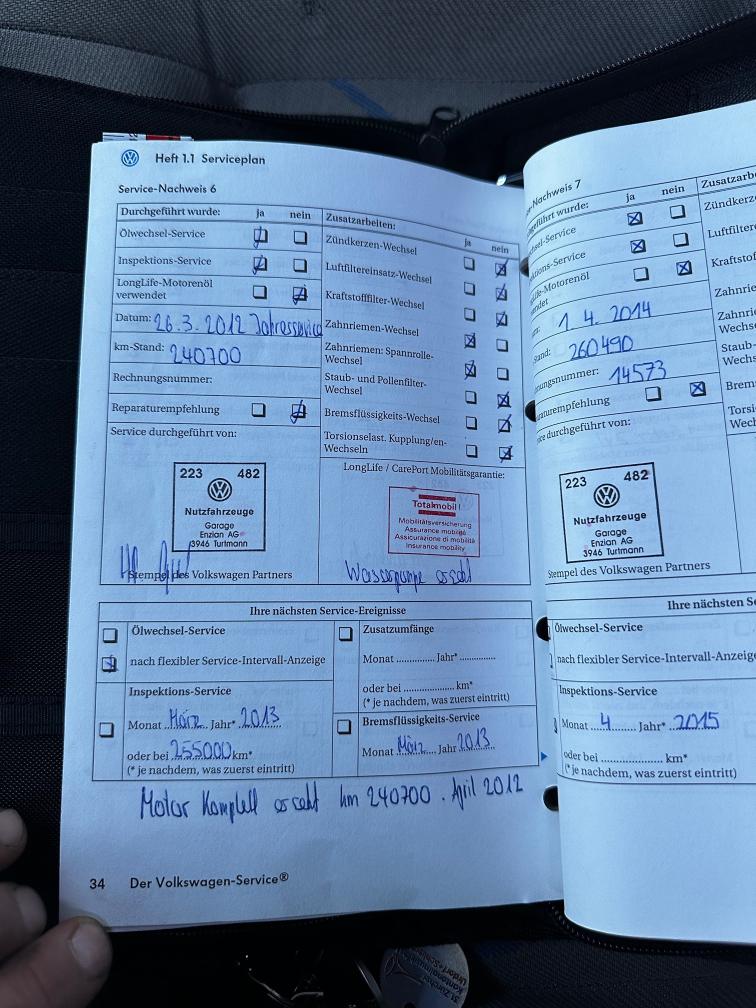 Heft 1.1 Serviceplan
Service-Nachweis 6
Durchgeführt wurde: ja nein
Ölwechsel-Service
Inspektions-Service
LongLife-Motorenöl
verwendet
Datum: 26.3.2012 Jahresservice
km-Stand: 240700
Rechnungsnummer:
Reparaturempfehlung
Service durchgeführt von:
223 482
Nutzfahrzeuge
Garage
Enzian AG
3946 Turtmann
Stempel des Volkswagen Partners
Zusatzarbeiten: ja nein
Zündkerzen-Wechsel
Luftfiltereinsatz-Wechsel
Kraftstofffilter-Wechsel
Zahnriemen-Wechsel
Zahnriemen: Spannrolle-
Wechsel
Staub- und Pollenfilter-
Wechsel
Bremsflüssigkeits-Wechsel
Torsionselast. Kupplung/en-
Wechseln
LongLife / CarePort Mobilitätsgarantie:
Totalmobil!
Mobilitätsversicherung
Assurance mobilité
Assicurazione di mobilità
Insurance mobility
Wasserpumpe ersetzt
Ihre nächsten Service-Ereignisse
Ölwechsel-Service
nach flexibler Service-Intervall-Anzeige
Inspektions-Service
Monat März Jahr* 2013
oder bei 255000 km*
(* je nachdem, was zuerst eintritt)
Zusatzumfänge
Monat .............. Jahr* ..............
oder bei ...................... km*
(* je nachdem, was zuerst eintritt)
Bremsflüssigkeits-Service
Monat März Jahr 2013
Motor Komplett ersetzt km 240700. April 2012
34 Der Volkswagen-Service®
-Nachweis 7
geführt wurde: ja nein
sel-Service
ktions-Service
ife-Motorenöl
ndet
1.4.2014
Stand: 260490
nungsnummer: 14573
araturempfehlung
ce durchgeführt von:
223 482
Nutzfahrzeuge
Garage
Enzian AG
3946 Turtmann
Stempel des Volkswagen Partners
Zusatzarbe
Zündkerze
Luftfiltere
Kraftstoff
Zahnrie
Zahnri
Wechs
Staub-
Wech
Brem
Torsi
Wech
Ihre nächsten Se
Ölwechsel-Service
nach flexibler Service-Intervall-Anzeige
Inspektions-Service
Monat 4 Jahr* 2015
oder bei ..................... km*
(* je nachdem, was zuerst eintritt)